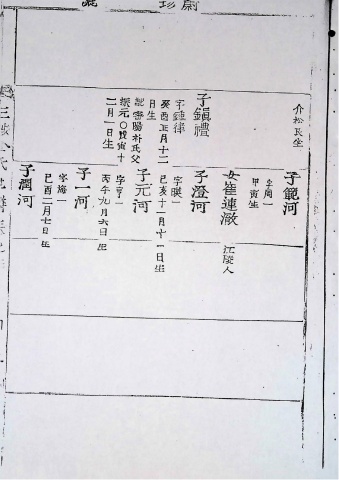 介松長生
子鎭禮
字鍾律
癸酉正月十二
日生
配密陽朴氏父
振元〇戊寅十
二月一日生
子範河
字周一
甲寅生
女崔連澈
江陵人
子澄河
字暎一
己亥十一月十一日生
子元河
字亨一
丙午九月六日生
子一河
字海一
己酉二月七日生
子潤河